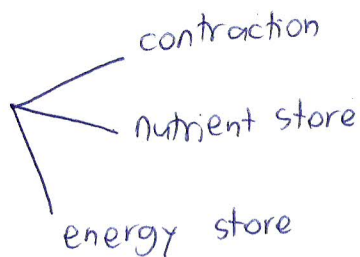 contraction
nutrient store
energy store